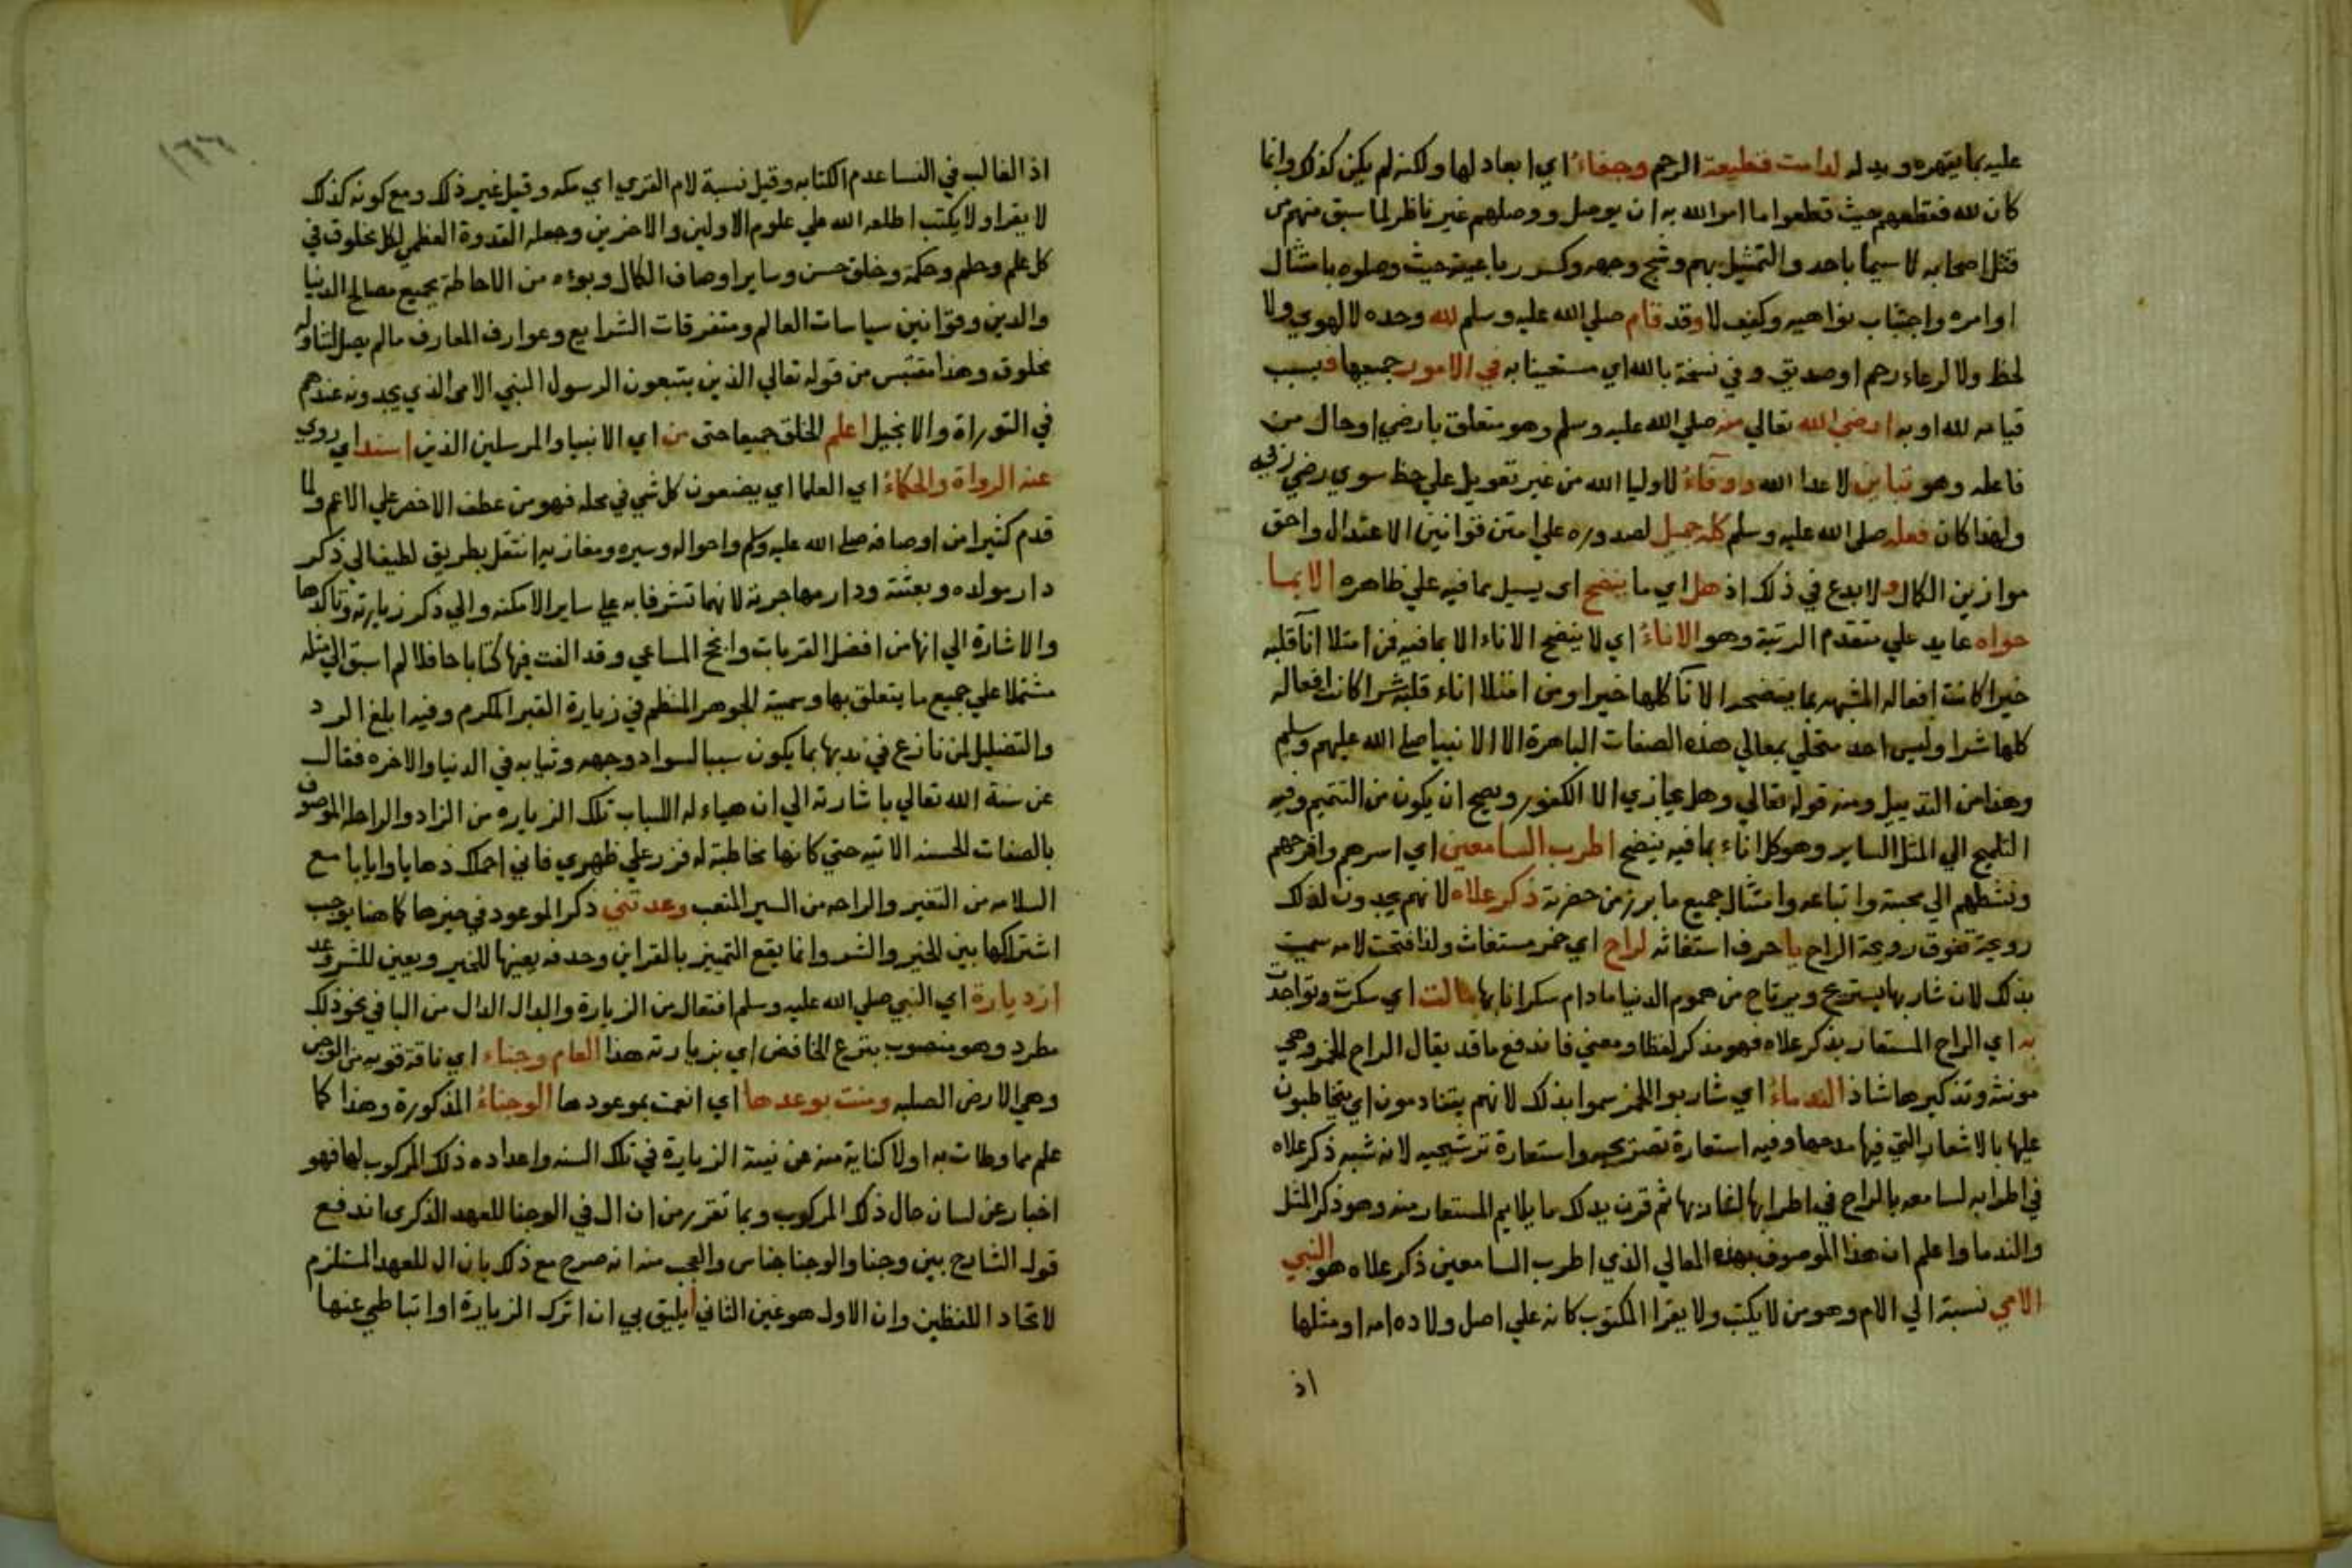 عليه بما يقهره ويد له لدامت قطيعة الرحم وجفاء اي ابعاد لها ولكنه لم يكن كذلك وانما
كان لله فقطعهم حيث قطعوا ما امر الله به ان يوصل ووصلهم غير ناظر لما سبق منهم من
قتل اصحابه لا سيما باحد والتمثيل بهم وشج وجهه وكسر رباعيته حيث وصلوه بامتثال
اوامره واجتناب نواهيه وكيف لا وقد قام صلي الله عليه وسلم لله وحده لا لهوي ولا
لحظ ولا لرعاء رحم او صديق وفي نسخة بالله اي مستعينا به في الامور جميعها فبسبب
قيامه لله او به ارضي الله تعالي منه صلي الله عليه وسلم وهو متعلق بارضي او حال من
فاعله وهو تباين لاعدا الله ووفاء لاوليا الله من غير تعويل علي حظ سوي رضي ربه
ولهذا كان فعله صلي الله عليه وسلم كله جميل لصدوره علي امتن قوانين الاعتدال واحق
موازين الكمال ولا بدع في ذلك اذ هل اي ما ينضح اي يسيل بما فيه علي ظاهره الا بما
حواه عايد علي متقدم الرتبة وهو الاناء اي لا ينضح الاناء الا بما فيه فمن امتلا اناء قلبه
خيرا كانت افعاله المشبهه بما ينضحه الانا كلها خيرا ومن امتلا اناء قلبه شرا كانت افعاله
كلها شرا وليس احد متحلي بمعالي هذه الصفات الباهرة الا الانبيا صلي الله عليهم وسلم
وهذا من التذييل ومنه قوله تعالي وهل يجازي الا الكفور ويصح ان يكون من التتميم وفيه
التلميح الي المثل الساير وهو كل اناء بما فيه ينضح اطرب السامعين اي اسرهم وافرحهم
ونشطهم الي محبته واتباعه وامتثال جميع ما برز من حضرته ذكر علاه لانهم يجدون لذلك
رويحة تفوق رويحة الراح يا حرف استغاثه لراح اي خمر مستغاث ولذا فتحت لامه سميت
بذلك لان شاربها يستريح ويرتاح من هموم الدنيا ما دام سكرانا بها مالت اي سكرت وتواجدت
به اي الراح المستعار بذكر علاه فهو مذكر لفظا ومعني فاندفع ما قد يقال الراح الخمر وهي
مونثه وتذكيرها شاذ الندماء اي شاربوا الخمر سموا بذلك لانهم يتنادمون اي يتخاطبون
عليها بالاشعار التي فيها مدحها وفيه استعارة تصريحيه واستعارة ترشيحيه لانه شبه ذكر علاه
في اطرابه لسامعه بالراح في اطرابها لشاربها ثم قرن بذلك ما يلايم المستعار منه وهو ذكر المثل
والندما واعلم ان هذا الموصوف بهذه المعالي الذي اطرب السامعين ذكر علاه هو النبي
الامي نسبة الي الام وهو من لا يكتب ولا يقرا المكتوب كانه علي اصل ولادة امه او مثلها
اذ
اذ الغالب في النسا عدم الكتابه وقيل نسبة لام القري اي مكه وقيل غير ذلك ومع كونه كذلك
لا يقرا ولا يكتب اطلعه الله علي علوم الاولين والاخرين وجعله القدوة العظمي لكل مخلوق في
كل علم وحلم وحكمة وخلق حسن وساير اوصاف الكمال وبوءه من الاحاطة بجميع مصالح الدنيا
والدين وقوانين سياسات العالم ومتفرقات الشرايع وعوارف المعارف ما لم يصل لتناوله
مخلوق وهذا مقتبس من قوله تعالي الذين يتبعون الرسول النبي الامي الذي يجدونه عندهم
في التوراة والانجيل اعلم الخلق جميعا حتي من اي الانبيا والمرسلين الذين اسند اي روي
عنه الرواة والحكماء اي العلما اي يضعون كل شي في محله فهو من عطف الاخص علي الاعم ولما
قدم كثيرا من اوصافه صلي الله عليه وسلم واحواله وسيره ومغازيه انتقل بطريق لطيف الي ذكر
دار مولده وبعثته ودار مهاجرته لانهما تشرفا به علي ساير الامكنه والي ذكر زيارته وتاكدها
والاشارة الي انها من افضل القربات وانجح المساعي وقد الفت فيها كتابا حافلا لم اسبق الي مثله
مشتملا علي جميع ما يتعلق بها وسميته الجوهر المنظم في زيارة القبر المكرم وفيه ابلغ الرد
والتضليل لمن نازع في ندبها بما يكون سببا لسواد وجهه وثيابه في الدنيا والاخره فقال
عن سنة الله تعالي باشارته الي ان هياء له اسباب تلك الزيارة من الزاد والراحلة الموصوفه
بالصفات الحسنه الاتيه حتي كانها مخاطبة له فزر علي ظهري فاني احملك ذهابا وايابا مع
السلامه من التغير والراحه من السير المتعب وعدتني ذكر الموعود في خيرها كما هنا يوجب
اشتراكها بين الخير والشر وانما يقع التمييز بالقراين وحدفه يعينها للخير ويعين للشر وعد
ازديارة اي النبي صلي الله عليه وسلم افتعال من الزيارة وابدال الدال من التا في نحو ذلك
مطرد وهو منصوب بنزع الخافض اي بزيارته هذا العام وجناء اي ناقة قويه من الوجن
وهي الارض الصلبه ومنت بوعدها اي انعمت بموعودها الوجناء المذكورة وهذا كما
علم مما وطات به اولا كناية منه عن نيته الزيارة في تلك السنه واعداده ذلك المركوب لها فهو
اخبار عن لسان حال ذلك المركوب وبما تقرر من ان ال في الوجنا للعهد الذكري اندفع
قول الشارح بين وجنا والوجنا جناس والعجب منه انه صرح مع ذلك بان ال للعهد المستلزم
لاتحاد اللفظين وان الاول هو عين الثاني ايليق بي ان اترك الزيارة او اتباطي عنها